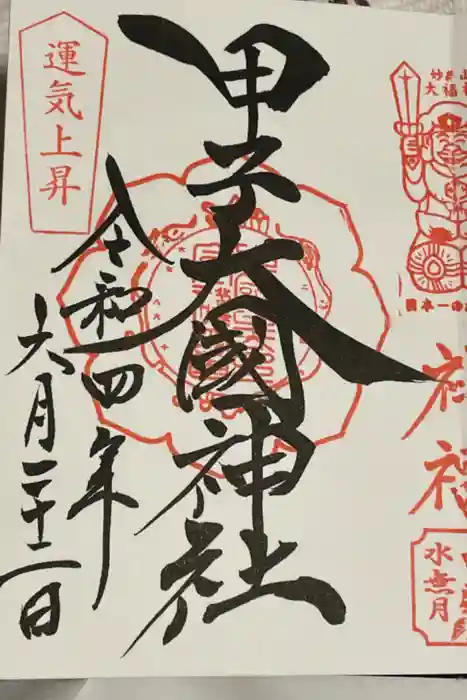 妙義山
大福
日本一の
水無月
甲子大國神社
令和四年
六月二十二日
運気上昇